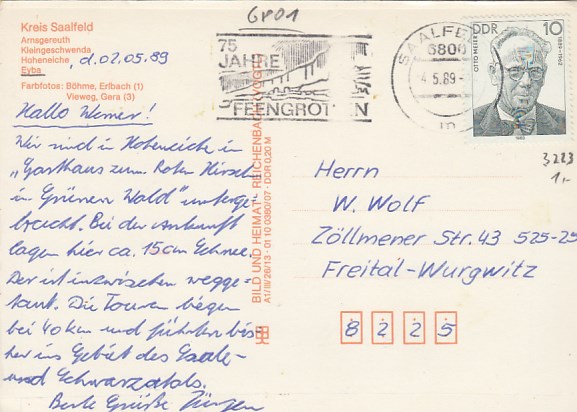 Kreis Saalfeld
Arnsgereuth
Kleingeschwenda
Hoheneiche
Eyba
, d. 02.05.89
Farbfotos: Böhme, Erlbach (1)
Vieweg, Gera (3)
Hallo Werner!
Wir sind in Hoheneiche in
„Gasthaus zum Roten Hirsch
im Grünen Wald" unterge-
bracht. Bei der Ankunft
lagen hier ca. 15 cm Schnee.
Der ist inzwischen wegge-
taut. Die Touren liegen
bei 40 km und führten bis-
her ins Gebiet des Saale-
und Schwarzatals.
Beste Grüße Jürgen
BILD UND HEIMAT REICHENBACH (VOGTL)
A1/III/26/13 01 10 0380/07 DDR 0,20 M
GP01
75
JAHRE
FEENGROTTEN
SAALFELD
6800
-4.5.89-
DDR 10
OTTO MEIER
1889-1962
1989
3223
1,-
Herrn
W. Wolf
Zöllmener Str. 43 525-25
Freital-Wurgwitz
8225